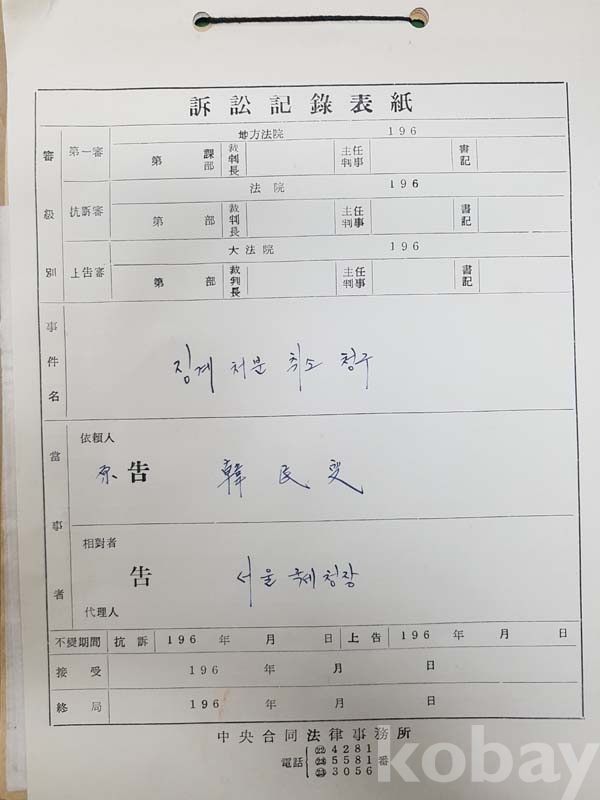 訴訟記錄表紙
審級別
第一審 地方法院 196
第 課部 裁判長 主任判事 書記
抗訴審 法院 196
第 部 裁判長 主任判事 書記
上告審 大法院 196
第 部 裁判長 主任判事 書記
事件名 징계 처분 취소 청구
當事者
依賴人
原告 韓民燮
相對者
告 서울 국세청장
代理人
不變期間 抗訴 196 年 月 日 上告 196 年 月 日
接受 196 年 月 日
終局 196 年 月 日
中央合同法律事務所
電話 ㉒4281 番
㉘5581
㉓3056
kobay